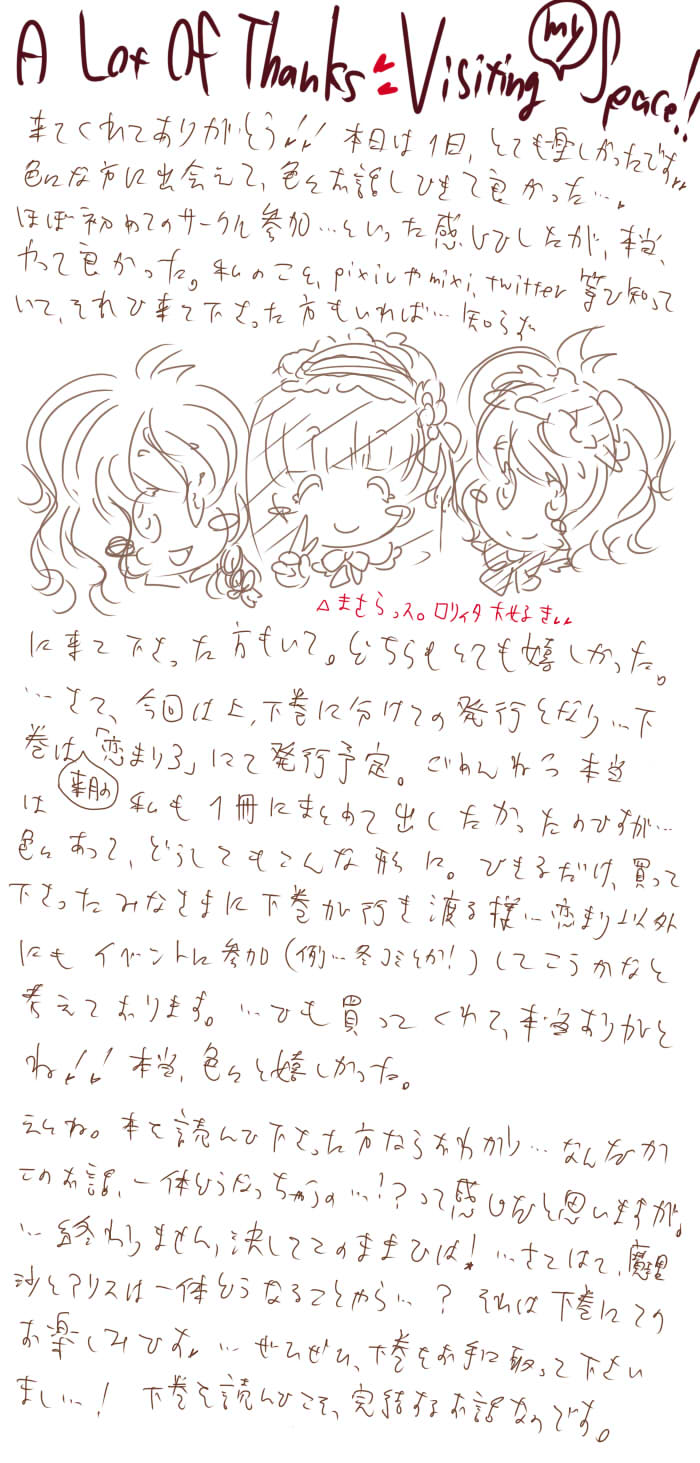 A Lot Of Thanks Visiting my Space!!
来てくれてありがとう!! 本日は1日、とても楽しかったです。
色んな方に出会えて、色々お話しできて良かった…。
ほぼ初めてのサークル参加…といった感じでしたが、本当、
やって良かった。私のこと、pixivやmixi、twitter 等で知って
いて、それで来て下さった方もいれば…知らず
△まさらっス。ロリィタ大せるき
に来て下さった方もいて。どちらもとても嬉しかった。
…さて、今回は上、下巻に分けての発行となり…下
巻は「恋まり3」にて発行予定。ごめんねっ 本当
は 来月の 私も 1冊にまとめて出したかったのですが…
色々あって、どうしてもこんな形に。できるだけ、買って
下さったみなさまに下巻が行き渡る様…恋まり以外
にも イベントに参加(例…冬コミとか!)してこうかなと
考えております。…でも買ってくれて、本当ありがと
ね!! 本当、色々と嬉しかった。
えとね。本を読んで下さった方ならおわかり…なんだか
このお話、一体どうなっちゃうの…!?って感じだと思いますが。
…終わりません、決してこのままでは! …さてはて、魔理
沙とアリスは一体どうなることやら…? それは下巻にての
お楽しみです。…ぜひぜひ、下巻をお手に取って下さい
まし…! 下巻を読んでこそ、完結するお話なのです。